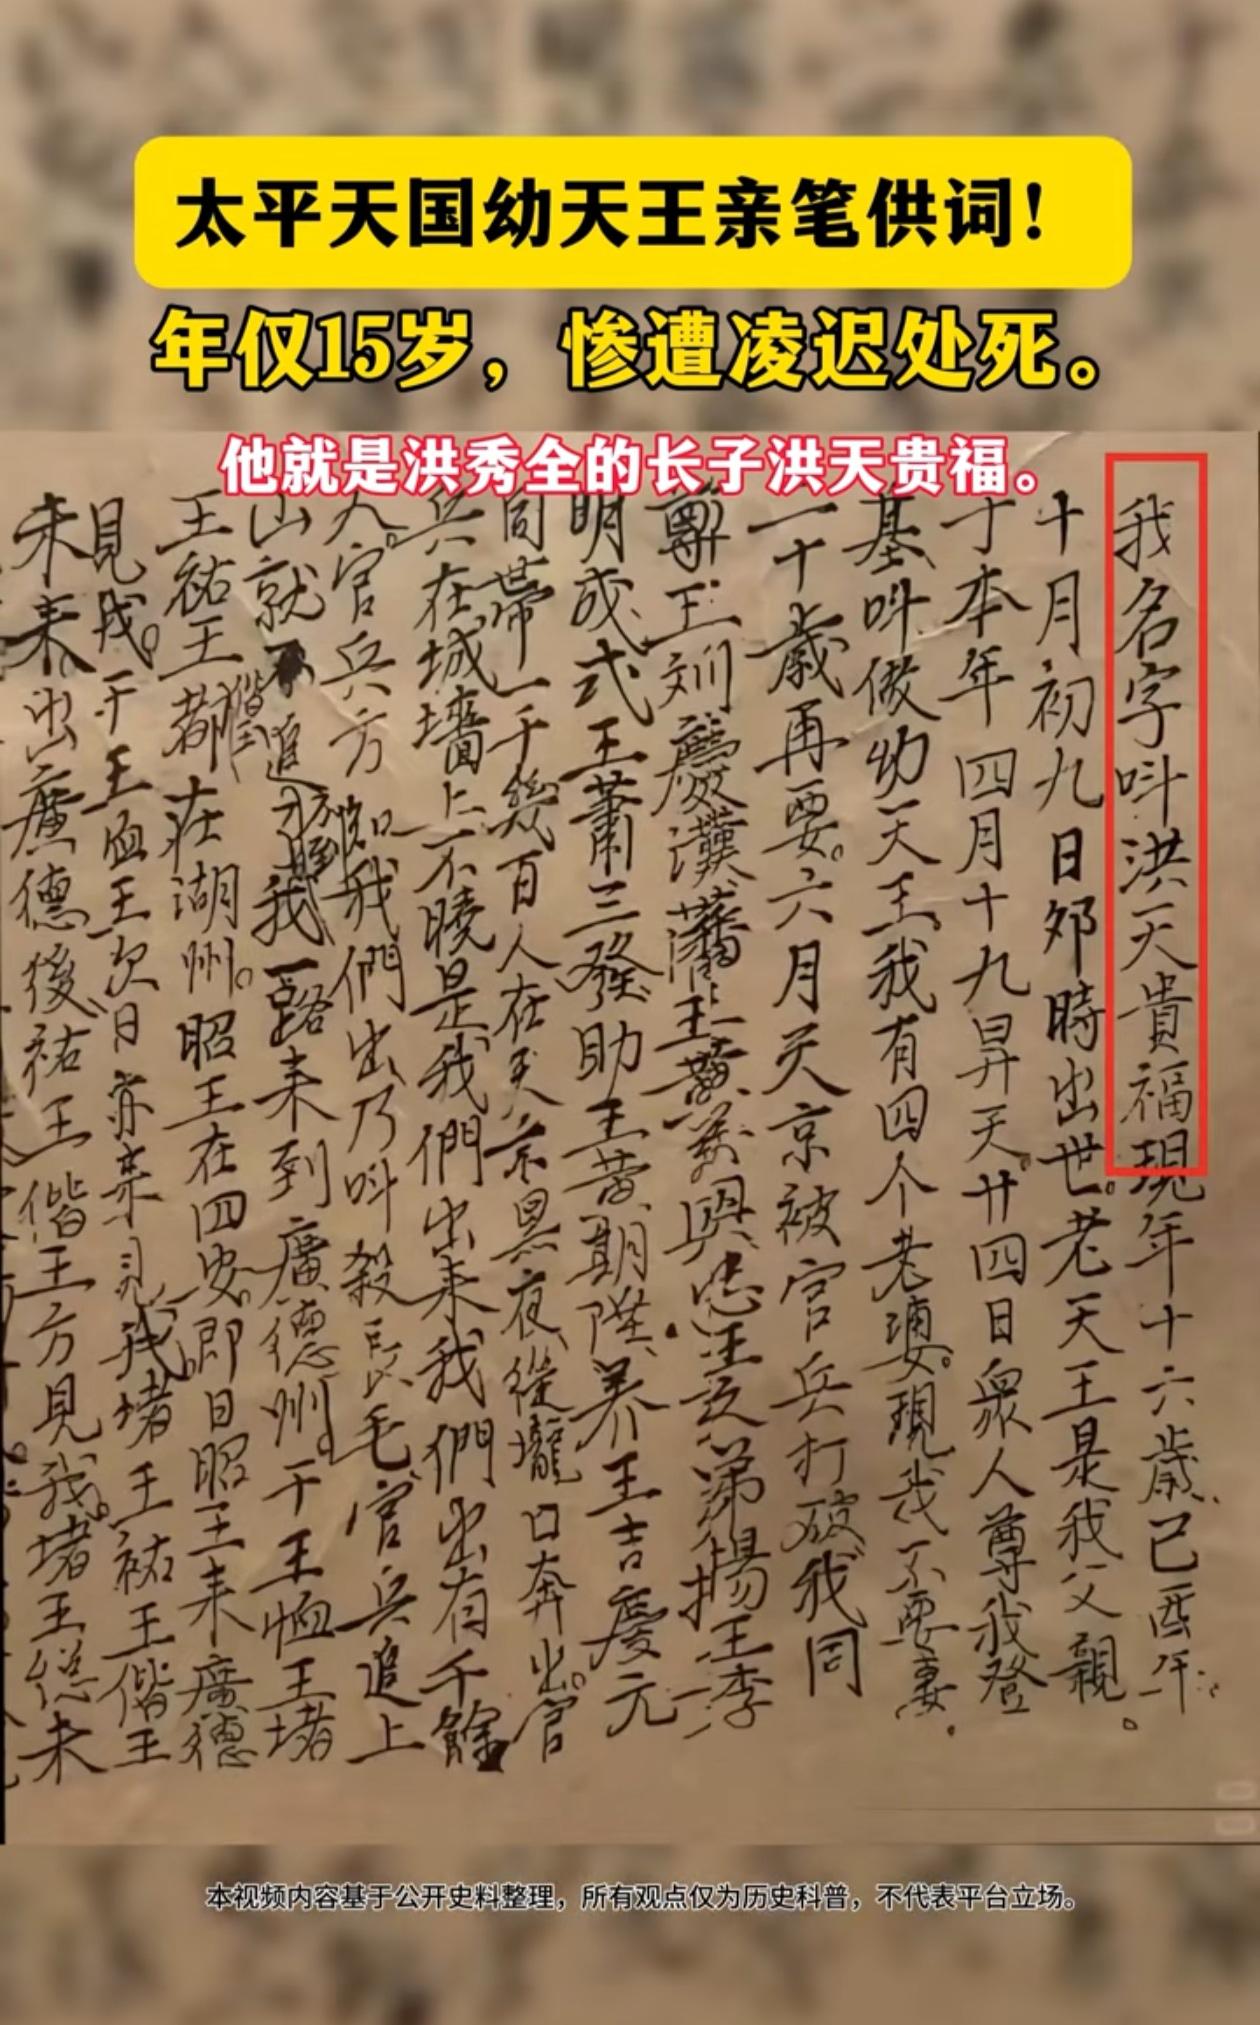 太平天国幼天王亲笔供词！
年仅15岁，惨遭凌迟处死。
他就是洪秀全的长子洪天贵福。
我名字叫洪天貴福現年十六歲己酉年
十月初九日卯時出世。老天王是我父親。
于本年四月十九昇天。廿四日眾人尊我登
基叫做幼天王。我有四个老婆。現我不要妻。
一十歲再要。六月天京被官兵打破我同
尊王刘慶漢藩王黄萬興忠王之弟揚王李
明成式王蕭三發助王黄期陞养王吉慶元
同帶一千幾百人在天京黑夜從壠口奔出。官
兵在城墻上不曉是我們出来我們出有千餘
人。官兵方知我們出乃叫殺長毛官兵追上
山就不追我一路来到廣德州。干王恤王堵
王祐王偕王都在湖州。昭王在四安。即日昭王来廣德
見我。干王恤王次日亦来見我。堵王祐王偕王
未来。出廣德後祐王偕王方見我。堵王総未
本视频内容基于公开史料整理，所有观点仅为历史科普，不代表平台立场。